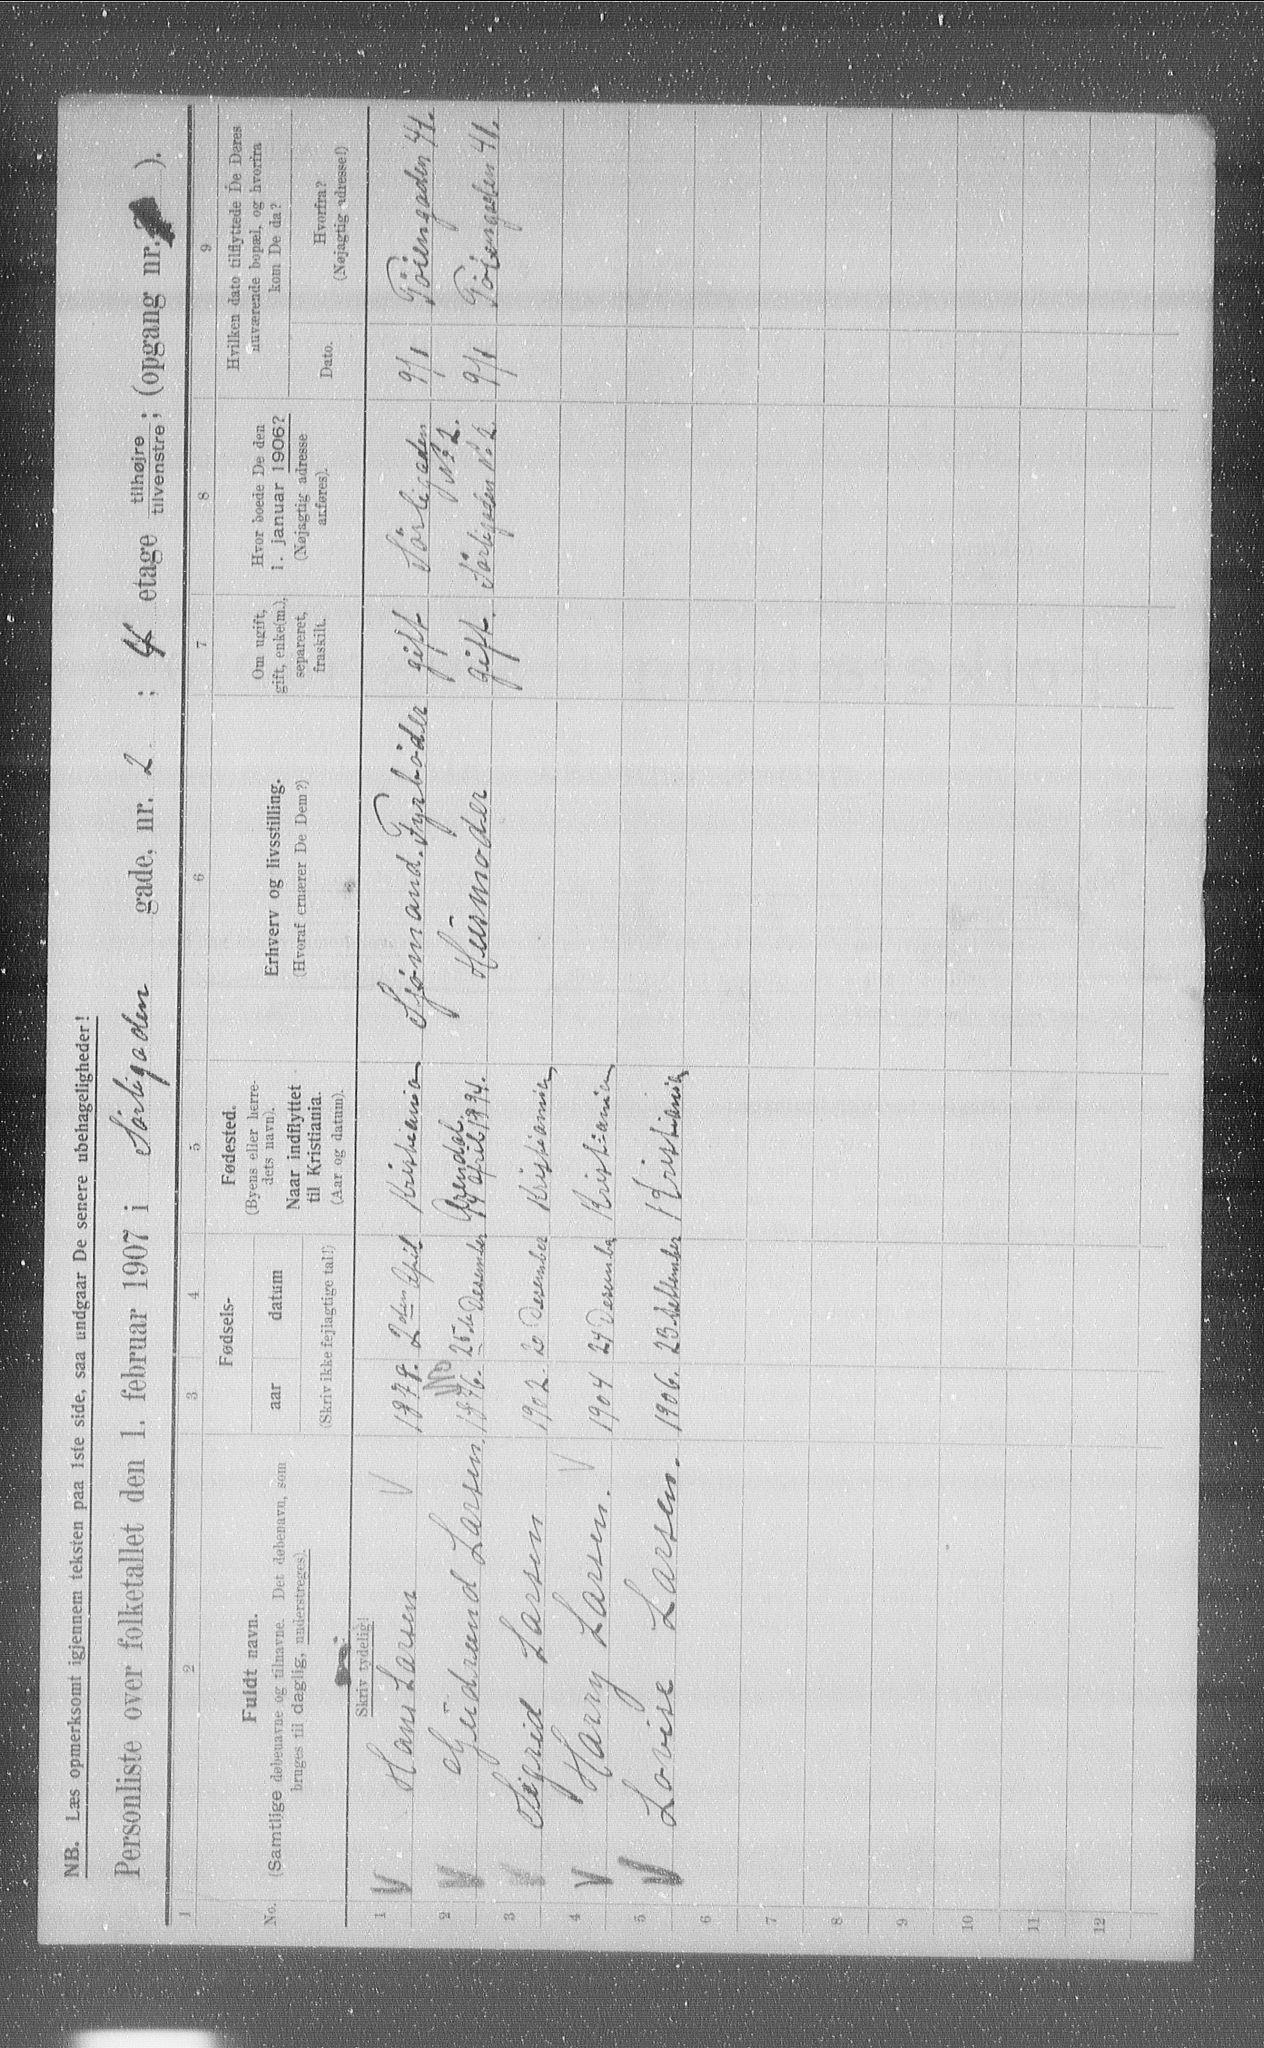 NB. Læs opmerksomt igjennem teksten paa 1ste side, saa undgaar De senere ubehageligheder!
Personliste over folketallet den 1. februar 1907 i Sörligaden gade, nr. 2 ; 4 etage tilhøjre / tilvenstre ; (opgang nr. ).
1 2 3 4 5 6 7 8 9
No.
Fuldt navn.
(Samtlige døbenavne og tilnavne. Det døbenavn, som
bruges til daglig, understreges).
Skriv tydelig!
Fødsels-
aar datum
(Skriv ikke fejlagtige tal!)
Fødested.
(Byens eller herre-
dets navn).
Naar indflyttet
til Kristiania.
(Aar og datum).
Erhverv og livsstilling.
(Hvoraf ernærer De Dem?)
Om ugift,
gift, enke(m.),
separeret,
fraskilt.
Hvor boede De den
1. januar 1906?
(Nøjagtig adresse
anføres).
Hvilken dato tilflyttede De Deres
nuværende bopæl, og hvorfra
kom De da?
Dato.
Hvorfra?
(Nøjagtig adresse!)
1 Hans Larsen 1878. 2den April Kristiania Sjömand. Fyrböder gift Sörligaden No 2. 9/1 Töiengaden 41.
2 Gudrund Larsen. 1876. 25de Desember 14 april 1894. Husmoder gift. Sörligaden No 2. 9/1 Töiengaden 41.
3 Sigrid Larsen 1902. 20 Desember Kristiania
4 Harry Larsen. 1904 24 Desember Kristiania
5 Lovise Larsen. 1906. 23 September Kristiania
6
7
8
9
10
11
12